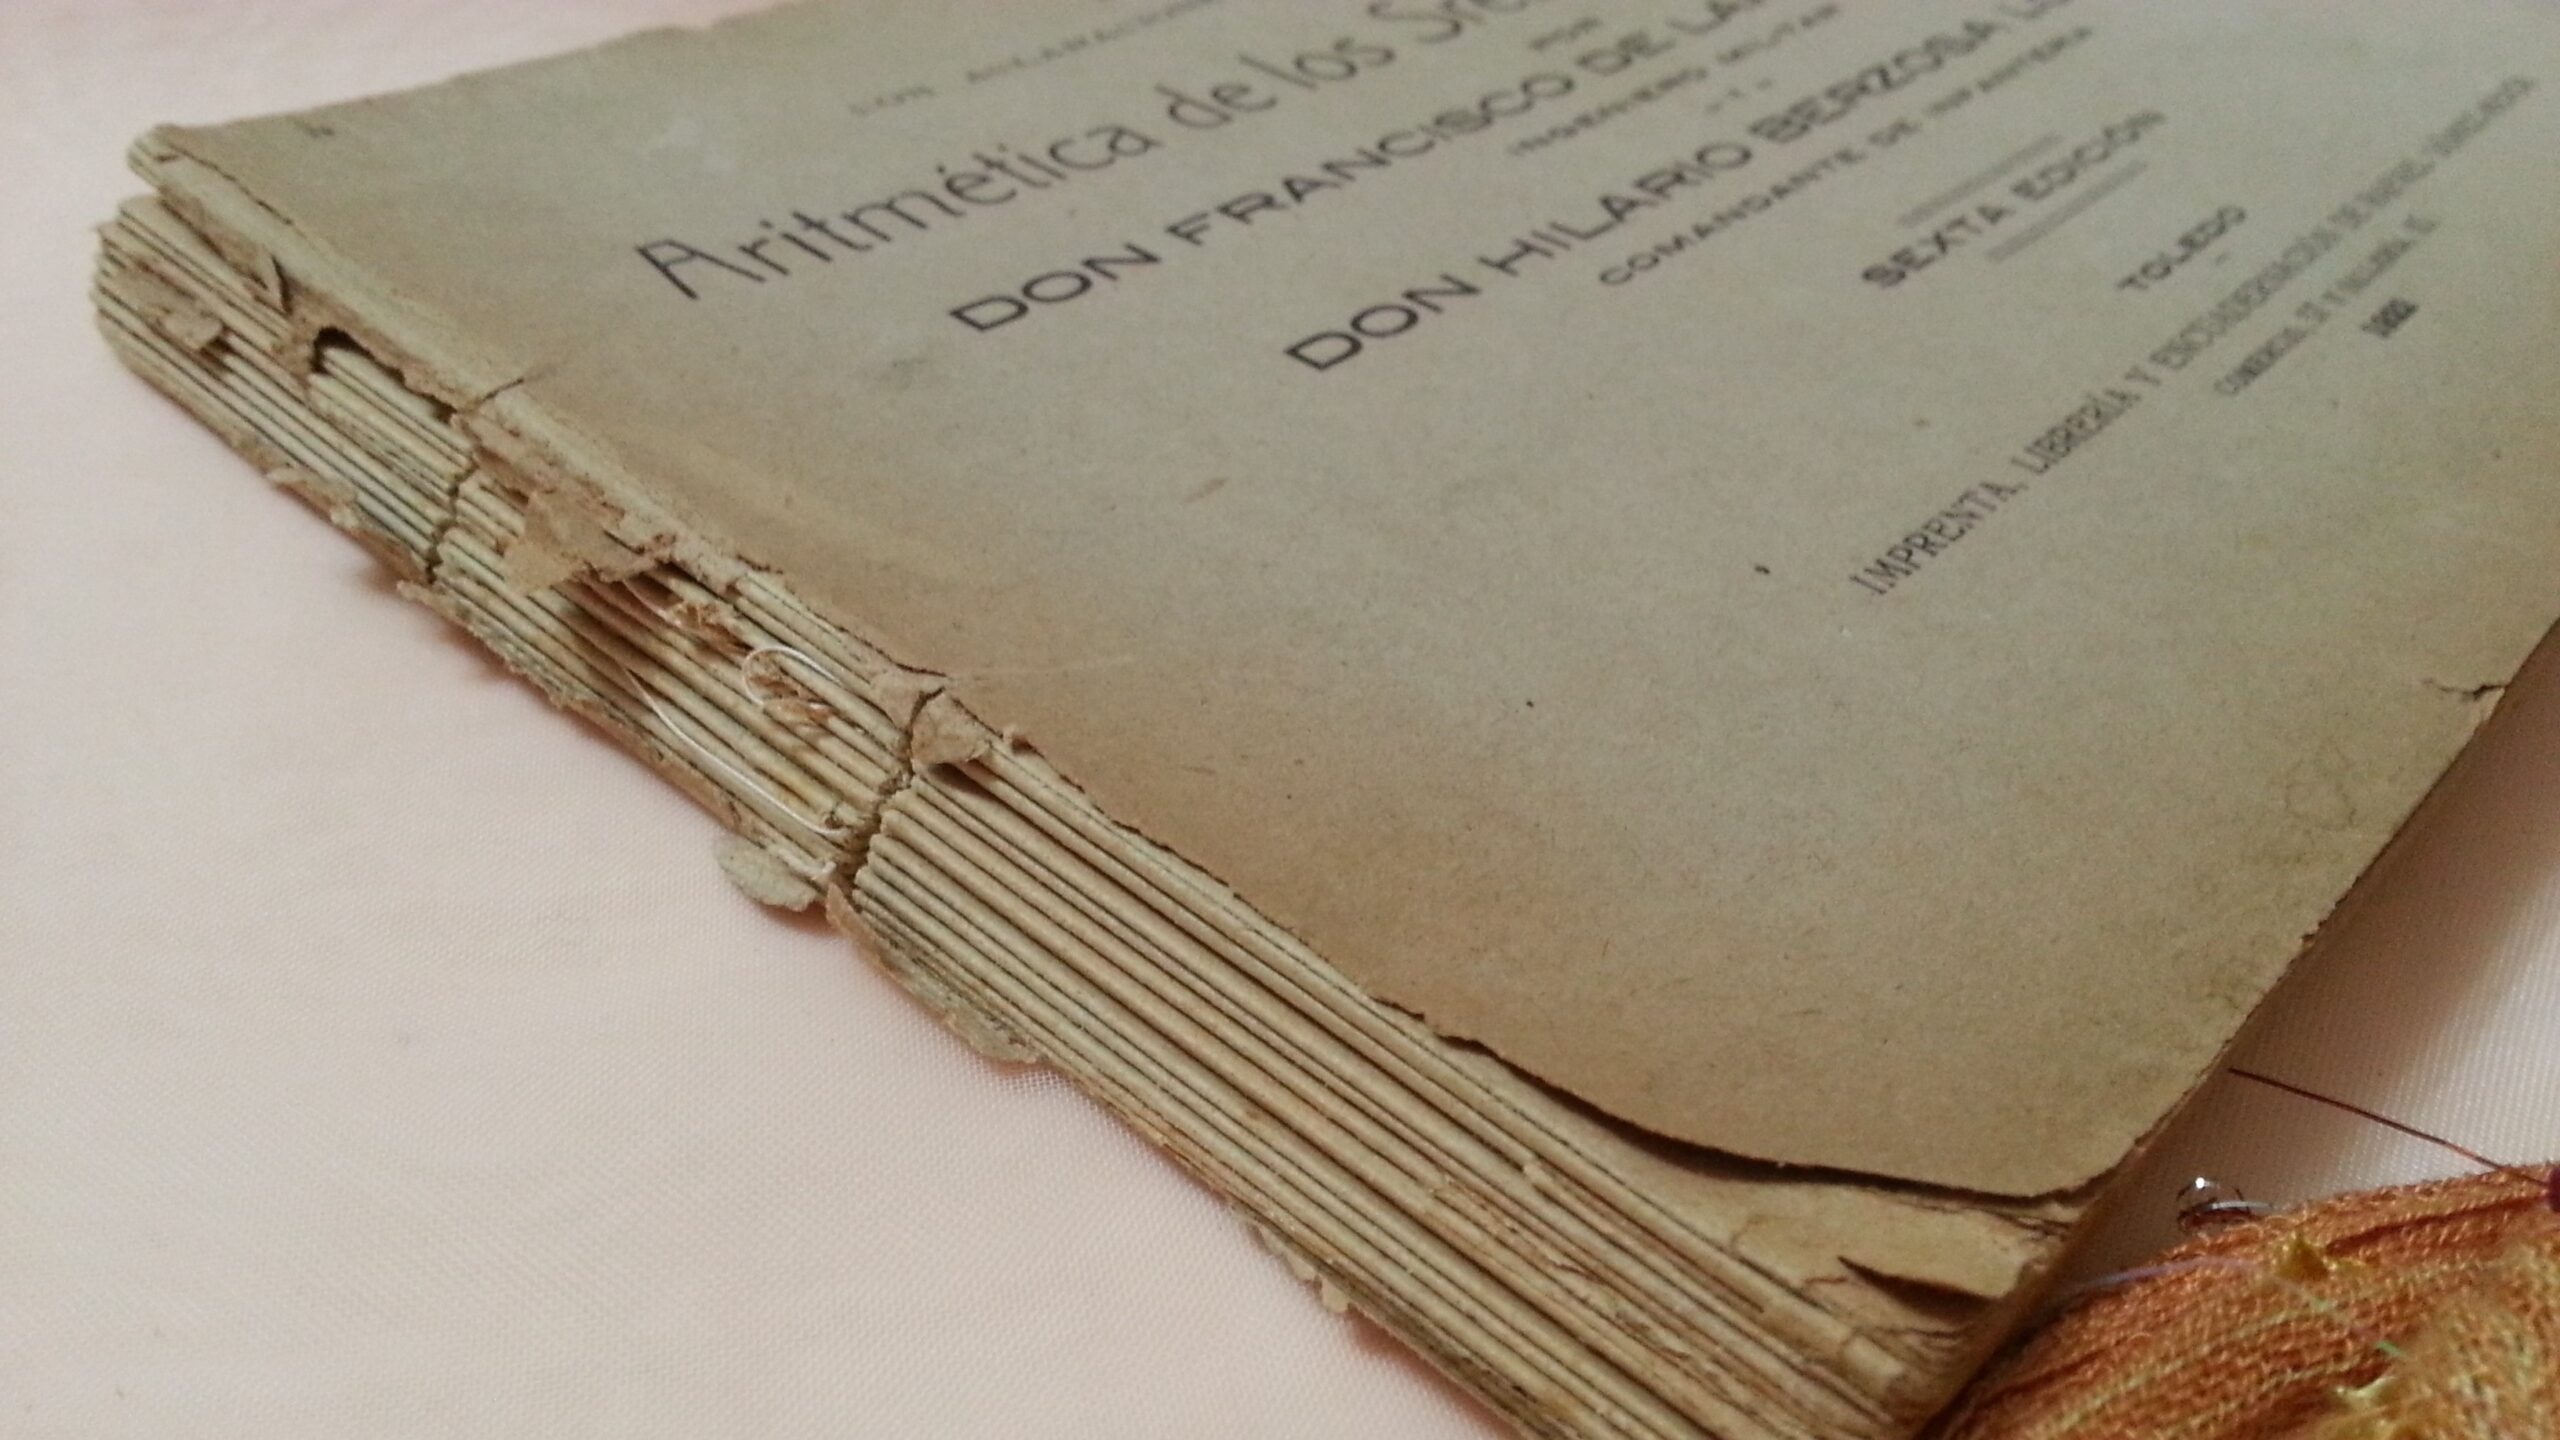 CON
Aritmética de los
POR
DON FRANCISCO DE
INGENIERO MILITAR
- Y -
DON HILARIO BERZOSA
COMANDANTE DE INFANTERIA
SEXTA EDICIÓN
TOLEDO
IMPRENTA, LIBRERÍA Y ENCUADERNACION DE RAFAEL
COMERCIO,